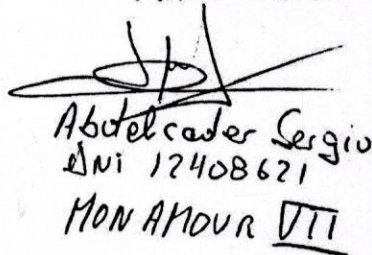 Abdelcader Sergio
DNi 12408621
MON AMOUR VII